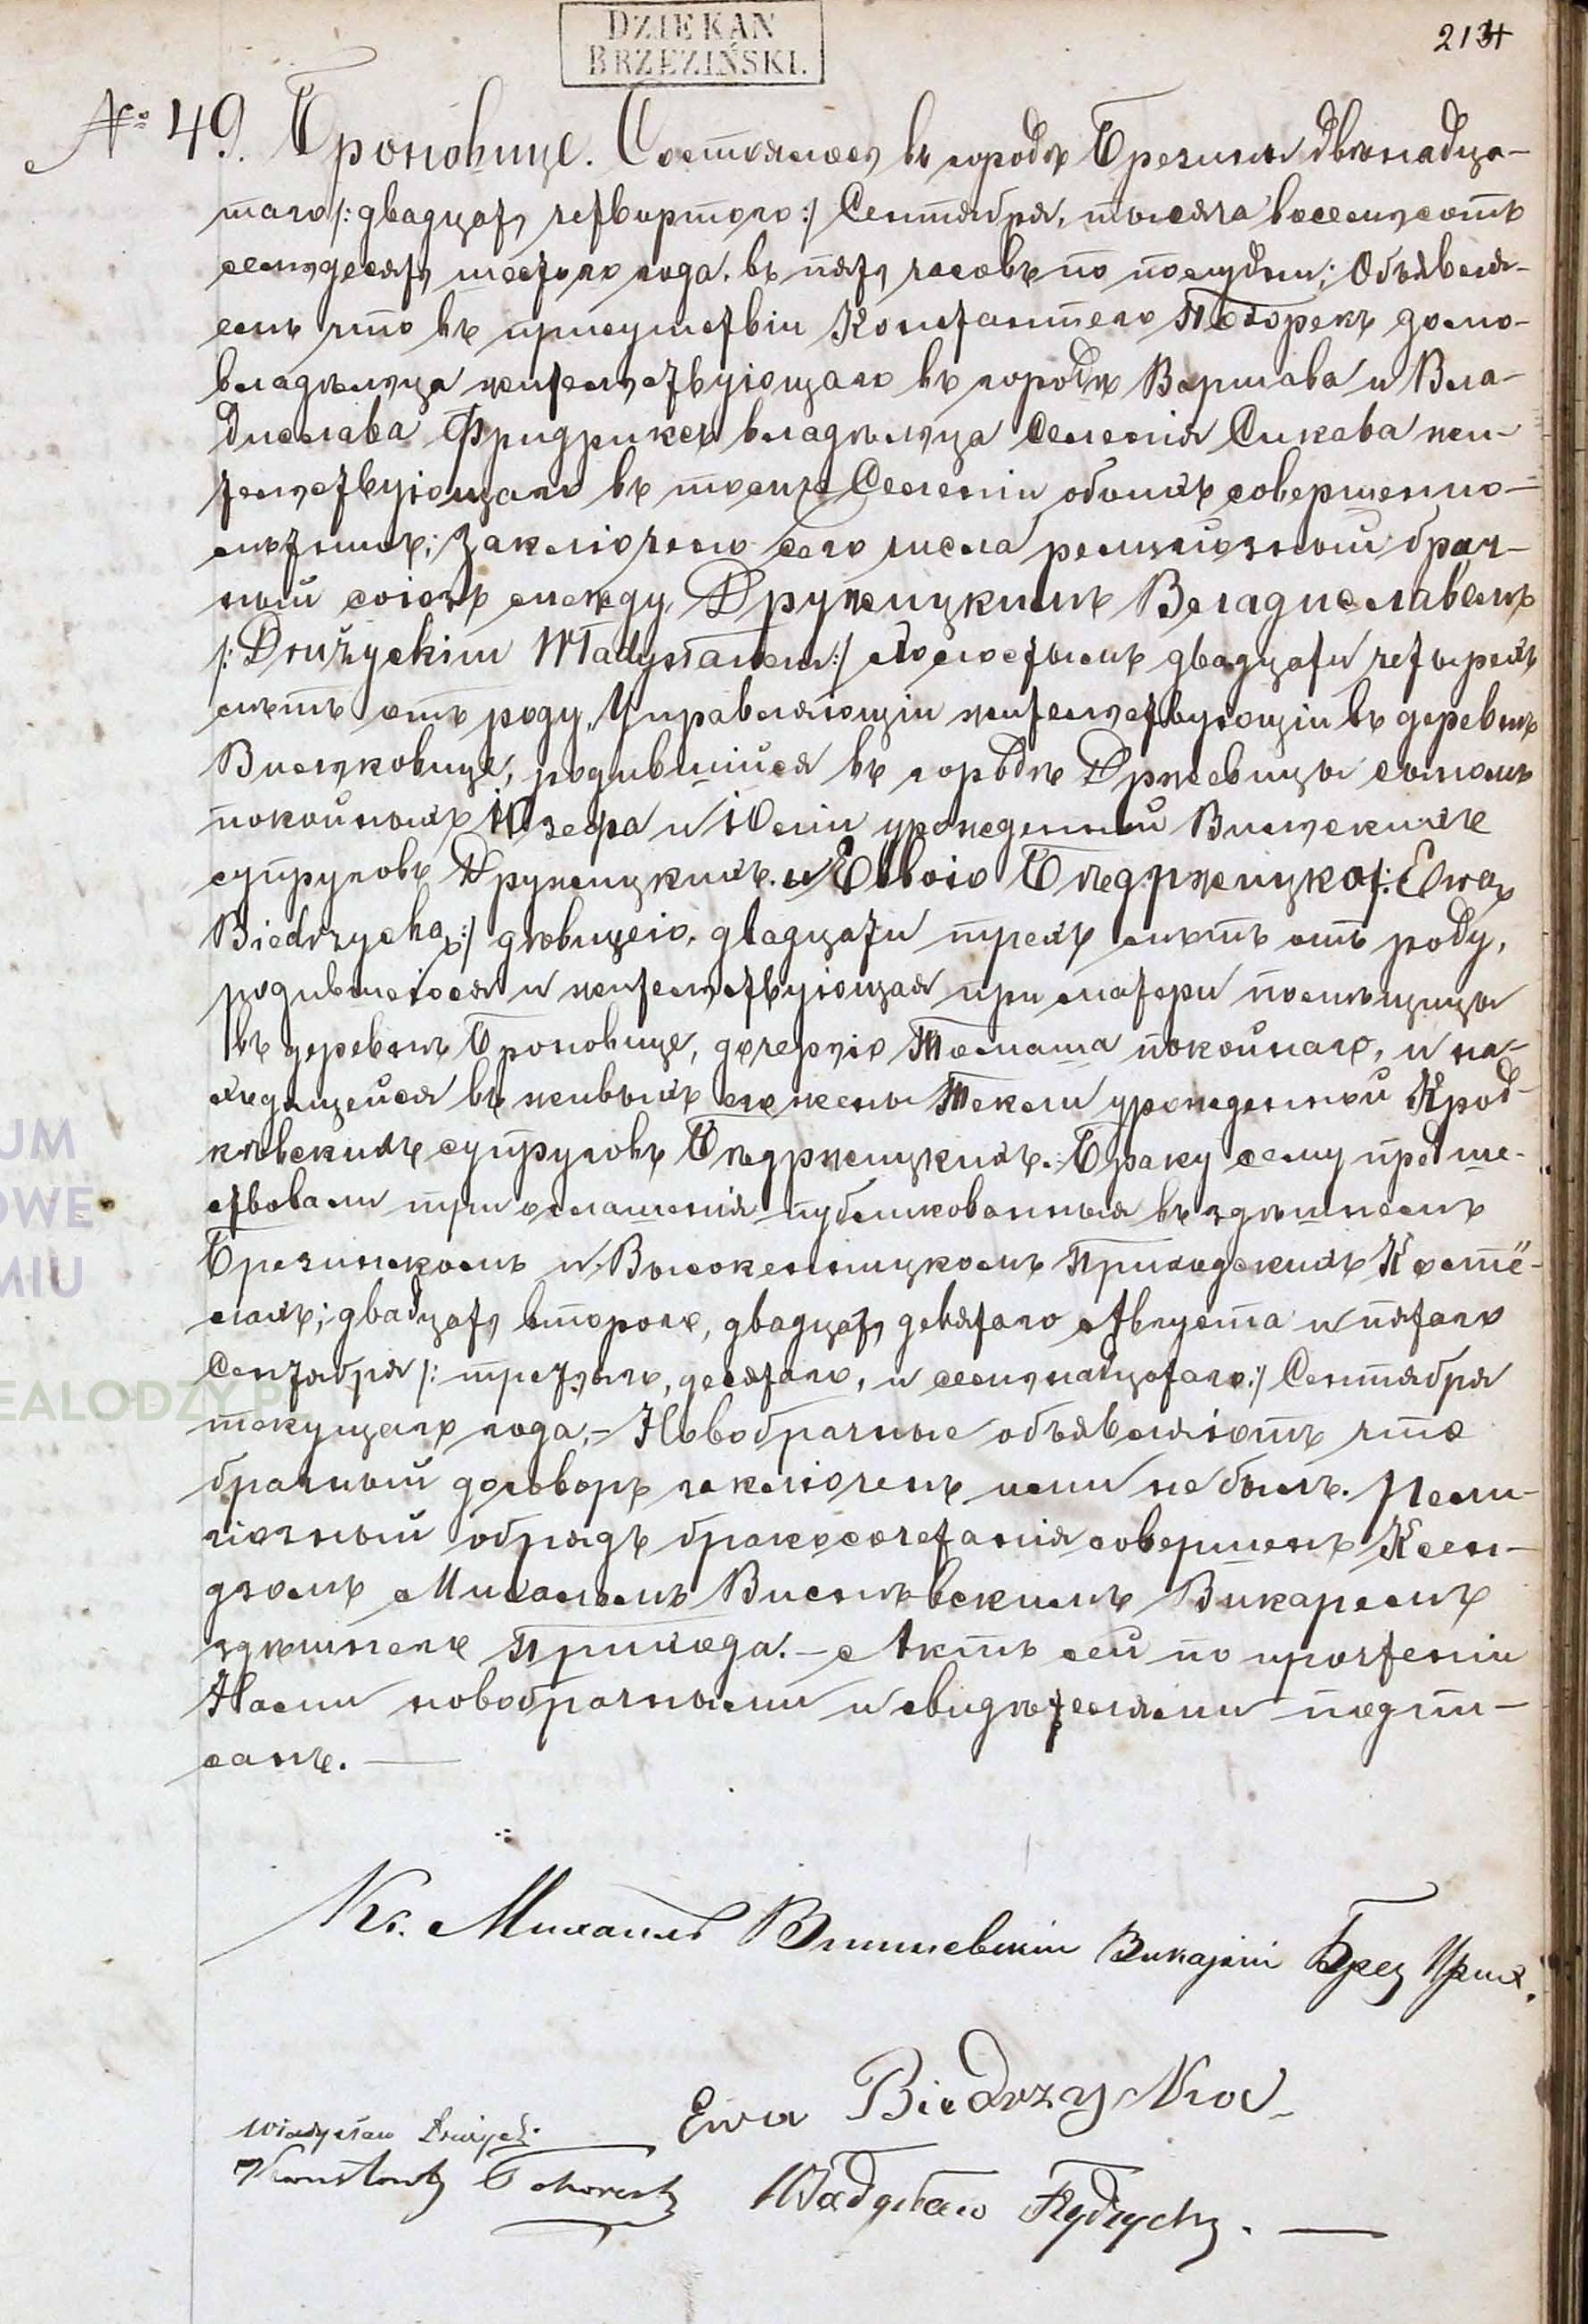 DZIEKAN
BRZEZIŃSKI.
2134
№ 49. Броновице. Состоялось въ городѣ Брезины двѣнадца-
таго /: двадцать четвертого :/ Сентября, тысяча восемьсотъ
семьдесять шестого года, въ пять часовъ по полудни; Объявля-
емъ что въ присутствіи Константого Похорекъ домо-
владѣльца жительствующаго въ городѣ Варшава и Вла-
дислава Фридрихъ владѣльца Селенія Сикава жи-
тельствующаго въ томже Селеніи обоихъ совершенно-
лѣтнихъ; заключено сего числа религіозный брач-
ный союзъ между Држужицкимъ Владиславомъ
/: Drużyckim Władysławem :/ холостымъ двадцати четырехъ
лѣтъ отъ роду, Управляющіи жительствующіи въ деревнѣ
Вильковице, родившійся въ городѣ Држевицы сыномъ
покойныхъ Юзефа и Юліи урожденной Вильскихъ
супруговъ Дружицкихъ. и Евою Бѣдржицко /: Ewą
Biedrzycką :/ дѣвицею, двадцати трехъ лѣтъ отъ роду,
родившеюся и жительствующая при матери помѣщицы
въ деревнѣ Броновице, дочерью Томаша покойнаго, и на-
ходящейся въ живыхъ его жены Текли урожденной Крод-
ковскихъ супруговъ Бѣдржицкихъ. Браку сему предше-
ствовали три оглашенія публикованныя въ здѣшнемъ
Брезинскомъ и Высокеницкомъ Приходскихъ Костё-
лахъ; двадцать второго, двадцать девятаго Августа и пятаго
Сентября /: третьяго, десятаго, и семьнадцатаго :/ Сентября
текущаго года, – Новобрачные объявляютъ что
брачный договоръ заключенъ ими не былъ. Рели-
гіозный обрядъ бракосочетанія совершенъ Ксен-
дзомъ Михаломъ Виснѣвскимъ Викаремъ
здѣшняго Прихода. – Актъ сей по прочтеніи
Нами новобрачными и свидѣтелями подпи-
санъ. —
Кс. Михаилъ Вишневскіи Викарій Брез Прих.
Ewa Biedrzycka
Władysław Drużycki
Konstanty Władysław Frydrych. —